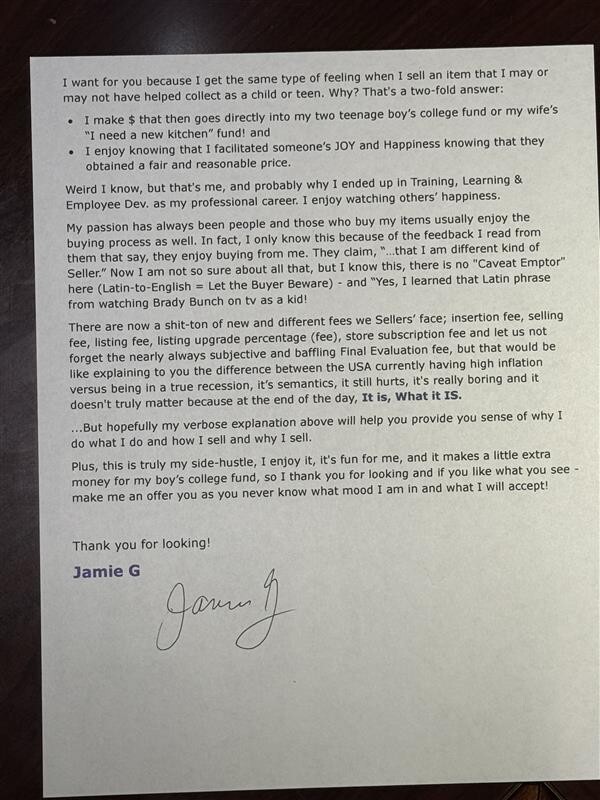 I want for you because I get the same type of feeling when I sell an item that I may or
may not have helped collect as a child or teen. Why? That's a two-fold answer:
• I make $ that then goes directly into my two teenage boy's college fund or my wife's
"I need a new kitchen" fund! and
• I enjoy knowing that I facilitated someone's JOY and Happiness knowing that they
obtained a fair and reasonable price.
Weird I know, but that's me, and probably why I ended up in Training, Learning &
Employee Dev. as my professional career. I enjoy watching others' happiness.
My passion has always been people and those who buy my items usually enjoy the
buying process as well. In fact, I only know this because of the feedback I read from
them that say, they enjoy buying from me. They claim, "...that I am different kind of
Seller." Now I am not so sure about all that, but I know this, there is no "Caveat Emptor"
here (Latin-to-English = Let the Buyer Beware) - and "Yes, I learned that Latin phrase
from watching Brady Bunch on tv as a kid!
There are now a shit-ton of new and different fees we Sellers' face; insertion fee, selling
fee, listing fee, listing upgrade percentage (fee), store subscription fee and let us not
forget the nearly always subjective and baffling Final Evaluation fee, but that would be
like explaining to you the difference between the USA currently having high inflation
versus being in a true recession, it's semantics, it still hurts, it's really boring and it
doesn't truly matter because at the end of the day, It is, What it IS.
...But hopefully my verbose explanation above will help you provide you sense of why I
do what I do and how I sell and why I sell.
Plus, this is truly my side-hustle, I enjoy it, it's fun for me, and it makes a little extra
money for my boy's college fund, so I thank you for looking and if you like what you see -
make me an offer you as you never know what mood I am in and what I will accept!
Thank you for looking!
Jamie G
Jamie G